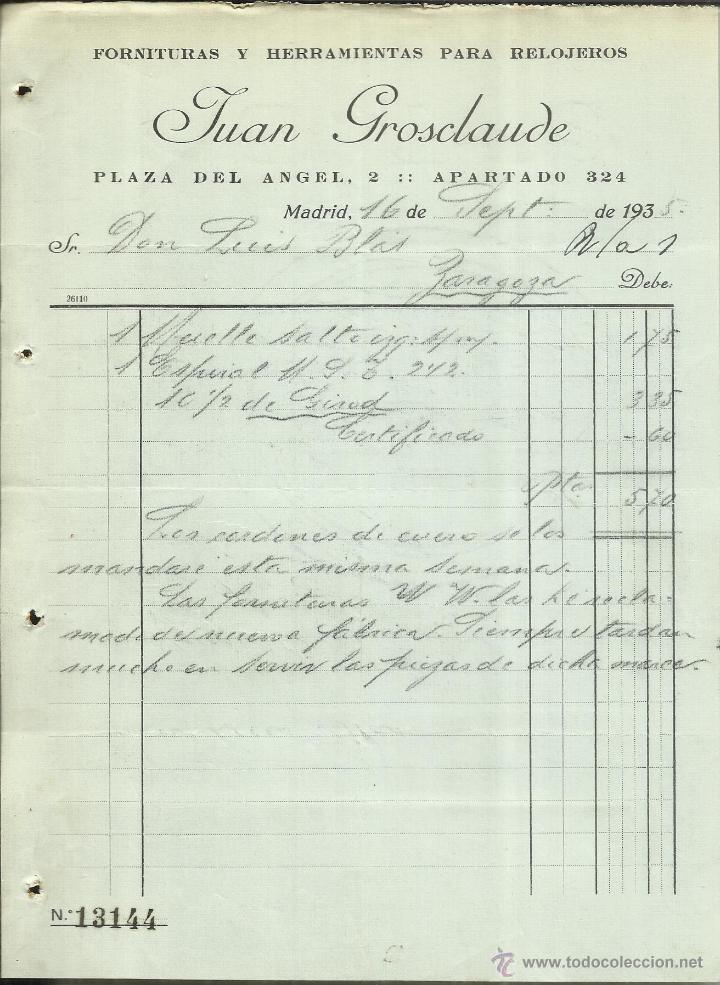 FORNITURAS Y HERRAMIENTAS PARA RELOJEROS
Juan Grosclaude
PLAZA DEL ANGEL, 2 :: APARTADO 324
Madrid, 16 de Sept. de 1935.
Sr. Don Luis Blas
Zaragoza Debe:
26110
1 Muelle salto izq. 1,75
1 Espiral 242.
10 1/2 de Girod 3 35
Certificado - 60
Ptas 5,70
Los cordones de cuero se los
mandaré esta misma semana.
Las fornituras W W. las he recla-
mado de nuevo a fábrica. Siempre tardan
mucho en servir las piezas de dicha marca.
N.° 13144
www.todocoleccion.net